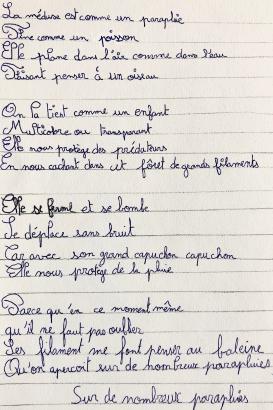 La méduse est comme un parapluie
Fine comme un poisson
Elle plane dans l'air comme dans l'eau
Faisant penser à un oiseau
On la tient comme un enfant
Multicolore ou transparent
Elle nous protège des prédateurs
En nous cachant dans cet fôret de grands filaments
Elle se ferme et se bombe
Se déplace sans bruit
Car avec son grand capuchon capuchon
Elle nous protège de la pluie
Parce qu'en ce moment même
qu'il ne faut pas oublier
Les filament me font penser au baleine
Qu'on aperçoit sur de nombreux parapluies
Sur de nombreux parapluies